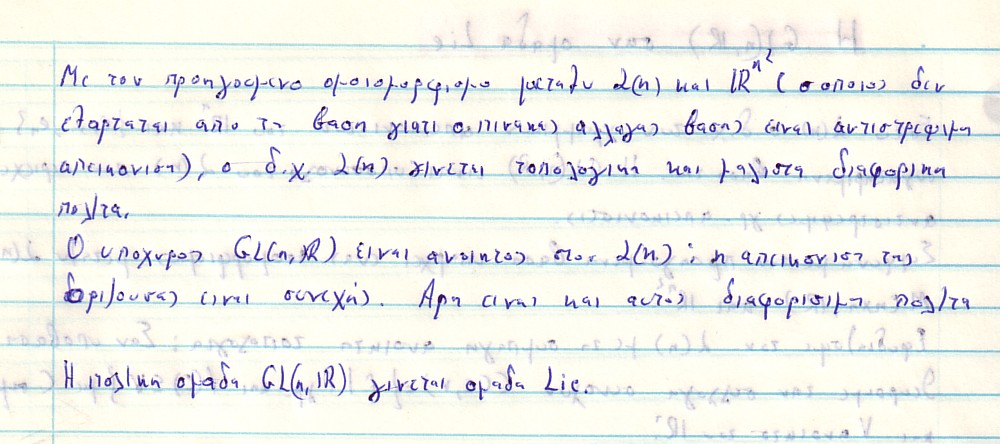 Με τον προηγουμενο ομοιομορφισμο μεταξυ L(n) και ℝ^n² (ο οποιος δεν
εξαρταται απο τη βαση γιατι ο πινακας αλλαγας βασης ειναι αντιστρεψιμη
απεικονιση), ο δ.χ. L(n) γινεται τοπολογικη και μαλιστα διαφορικη
πολ/τα.
Ο υποχωρος GL(n,ℝ) ειναι ανοικτος στον L(n): η απεικονιση της
οριζουσας ειναι συνεχης. Αρα ειναι και αυτος διαφορισιμη πολ/τα
Η πολ/κη ομαδα GL(n,ℝ) γινεται ομαδα Lie.